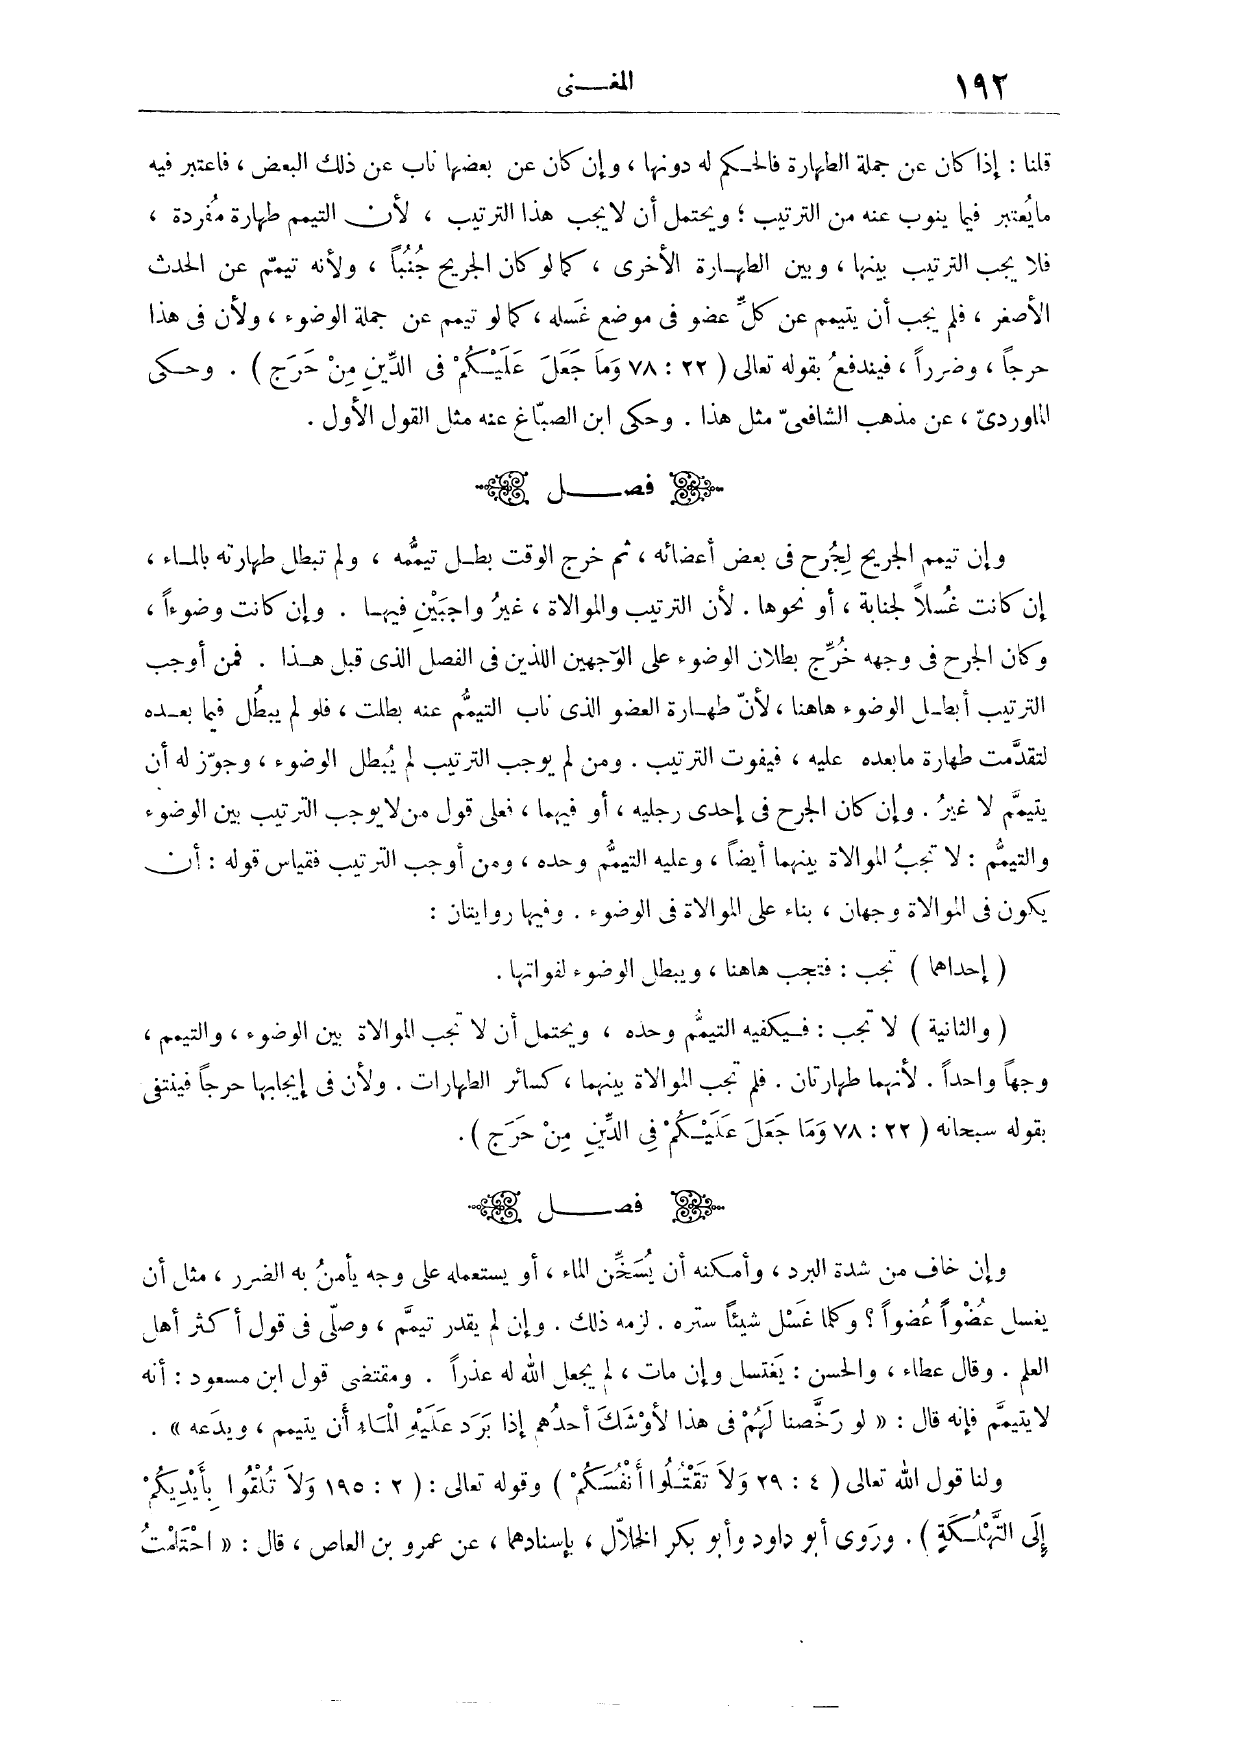 ١٩٢
المغـــنى
قلنا : إذا كان عن جملة الطهارة فالحـكم له دونها ، وإن كان عن بعضها ناب عن ذلك البعض ، فاعتبر فيه
مايُعتبر فيما ينوب عنه من الترتيب ؛ ويحتمل أن لا يجب هذا الترتيب ، لأن التيمم طهارة مُفردة ،
فلا يجب الترتيب بينها ، وبين الطهـارة الأخرى ، كما لو كان الجريح جُنُباً ، ولأنه تيمّم عن الحدث
الأصغر ، فلم يجب أن يتيمم عن كلِّ عضو فى موضع غَسله ، كما لو تيمم عن جملة الوضوء ، ولأن فى هذا
حرجاً ، وضرراً ، فيندفعُ بقوله تعالى ( ٢٢ : ٧٨ وَمَا جَعَلَ عَلَيْـكُمْ فى الدِّينِ مِنْ حَرَج ) . وحـكى
الماوردىّ ، عن مذهب الشافعىّ مثل هذا . وحكى ابن الصبّاغ عنه مثل القول الأول .
فصـــل
وإن تيمم الجريح لِجُرح فى بعض أعضائه ، ثم خرج الوقت بطـل تيمُّمه ، ولم تبطل طهارته بالمـاء ،
إن كانت غُسلاً لجنابة ، أو نحوها . لأن الترتيب والموالاة ، غيرُ واجبَيْنِ فيهـا . وإن كانت وضوءاً ،
وكان الجرح فى وجهه خُرِّج بطلان الوضوء على الوَجهين اللذين فى الفصل الذى قبل هـذا . فمن أوجب
الترتيب أبطـل الوضوء هاهنا ، لأنّ طهـارة العضو الذى ناب التيمُّم عنه بطلت ، فلو لم يبطُل فيما بعـده
لتقدَّمت طهارة مابعده عليه ، فيفوت الترتيب . ومن لم يوجب الترتيب لم يُبطل الوضوء ، وجوّز له أن
يتيمَّم لا غيرُ . وإن كان الجرح فى إحدى رجليه ، أو فيهما ، فعلى قول من لا يوجب الترتيب بين الوضوء
والتيمُّم : لا تجبُ الموالاة بينهما أيضاً ، وعليه التيمُّم وحده ، ومن أوجب الترتيب فقياس قوله : أن
يكون فى الموالاة وجهان ، بناء على الموالاة فى الوضوء . وفيها روايتان :
( إحداهما ) تجب : فتجب هاهنا ، ويبطل الوضوء لفواتها .
( والثانية ) لا تجب : فـيكفيه التيمُّم وحده ، ويحتمل أن لا تجب الموالاة بين الوضوء ، والتيمم ،
وجهاً واحداً . لأنهما طهارتان . فلم تجب الموالاة بينهما ، كسائر الطهارات . ولأن فى إيجابها حرجاً فينتفى
بقوله سبحانه ( ٢٢ : ٧٨ وَمَا جَعَلَ عَلَيْـكُمْ فِي الدِّينِ مِنْ حَرَج ) .
فصـــل
وإن خاف من شدة البرد ، وأمـكنه أن يُسَخِّن الماء ، أو يستعمله على وجه يأمنُ به الضرر ، مثل أن
يغسل عضْواً عُضواً ؟ وكلما غَسْل شيئاً ستره . لزمه ذلك . وإن لم يقدر تيمَّم ، وصلّى فى قول أكثر أهل
العلم . وقال عطاء ، والحسن : يَغتسل وإن مات ، لم يجعل الله له عذراً . ومقتضى قول ابن مسعود : أنه
لا يتيمَّم فإنه قال : « لو رَخَّصنا لَهُمْ فى هذا لأوْشَكَ أحدُهم إذا بَرَدَ عَلَيْهِ الْمَاء أَن يتيمم ، ويدَعه » .
ولنا قول الله تعالى ( ٤ : ٢٩ وَلاَ تَقْتُـلُوا أَنْفُسَكُمْ ) وقوله تعالى : ( ٢ : ١٩٥ وَلاَ تُلْقُوا بِأَيْدِيكُمْ
إِلَى التَّهْلُـكَةِ ) . ورَوى أبو داود وأبو بكر الخلاّل ، بإسنادهما ، عن عمرو بن العاص ، قال : « احْتَلَمْتُ